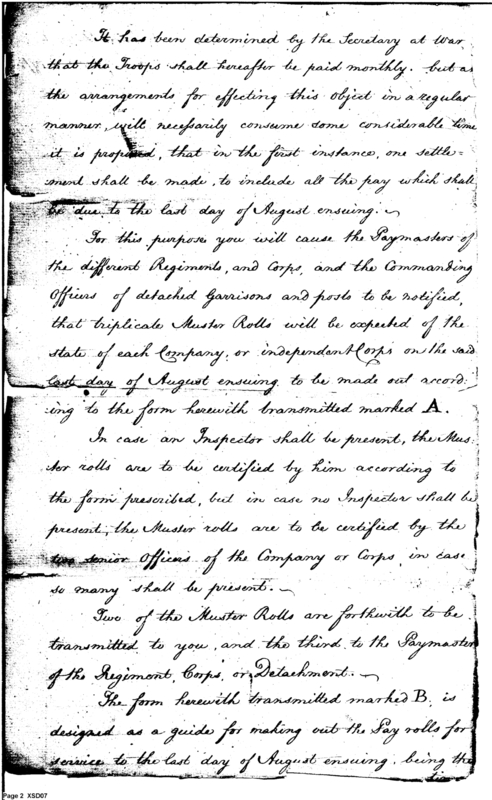 It has been determined by the Secretary at War
that the Troops shall hereafter be paid monthly. but as
the arrangements for effecting this object in a regular
manner, will necessarily consume some considerable time
it is proposed, that in the first instance, one settle=
ment shall be made, to include all the pay which shall
be due, to the last day of August ensuing. ~
For this purpose you will cause the Paymasters of
the different Regiments, and Corps, and the Commanding
Officers of detached Garrisons and posts to be notified,
that triplicate Muster Rolls will be expected of the
state of each Company, or independent Corps on the said
last day of August ensuing to be made out accord:
ing to the form herewith transmitted marked A.
In case an Inspector shall be present, the Mus:
ter rolls are to be certified by him according to
the form prescribed, but in case no Inspector shall be
present, the Muster rolls are to be certified by the
two senior Officers of the Company or Corps, in case
so many shall be present. ~
Two of the Muster Rolls are forthwith to be
transmitted to you, and the third to the Paymaster
of the Regiment, Corps, or Detachment. ~
The form herewith transmitted marked B. is
designed as a guide for making out the Pay rolls for
service to the last day of August ensuing. being the
Page 2 XSD07